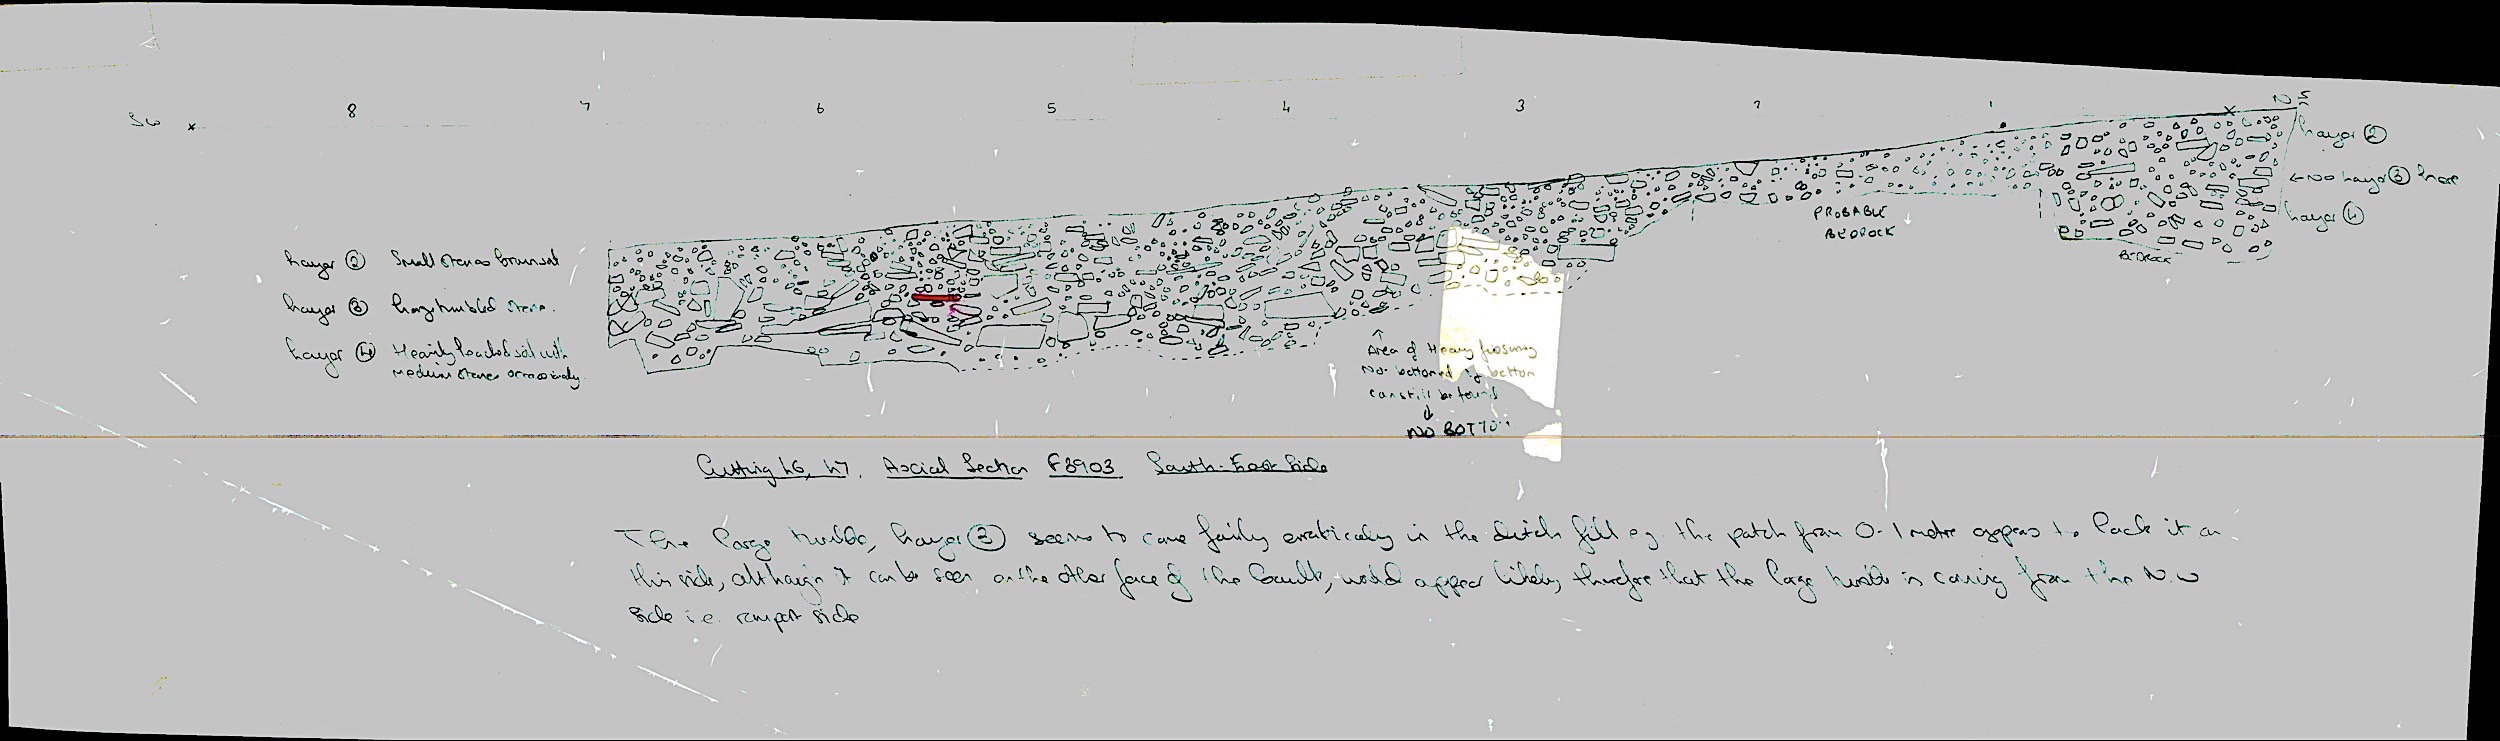 SW 8 7 6 5 4 3 2 1 NE
Layer ②
← No Layer ③ here
Layer ④
PROBABLE
BEDROCK
BEDROCK
Layer ② Small stones brown soil
Layer ③ Large tumbled stone.
Layer ④ Heavily leached soil with
medium stones occasionally.
Area of Heavy fissuring
Not bottomed if bottom
can still be found
NO BOTTOM
Cutting L6, L7. Axial Section F8903 South-East Side
The large tumble, Layer ③ seems to come fairly erratically in the ditch fill e.g. the patch from 0-1 metre appears to lack it on
this side, although it can be seen on the other face of the baulk, would appear likely therefore that the large tumble is coming from the N.W
side i.e. rampart side